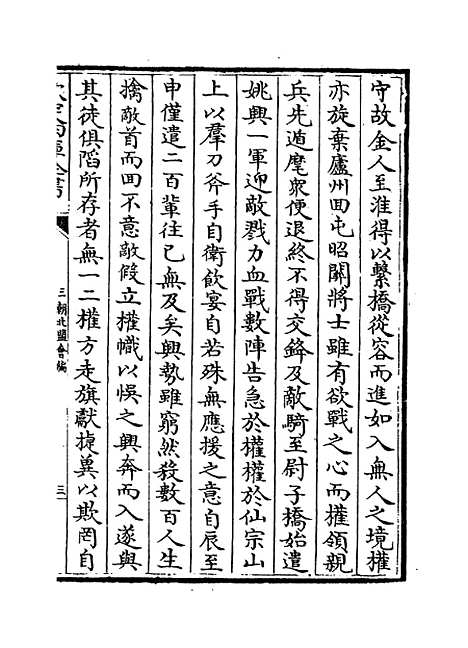 守故金人至淮得以繫橋從容而進如入無人之境權
亦旋棄廬州囬屯昭關將士雖有欲戰之心而權領親
兵先遁麾衆便退終不得交鋒及敵騎至尉子橋始遣
姚興一軍迎敵戮力血戰數陣告急於權權於仙宗山
上以羣刀斧手自衛飲宴自若殊無應援之意自辰至
申僅遣二百輩往已無及矣興勢雖窮然殺數百人生
擒敵首而囬不意敵假立權幟以悮之興奔而入遂與
其徒俱䧟所存者無一二權方走旗獻捷兾以欺罔自
欽定四庫全書
三朝北盟會編
三